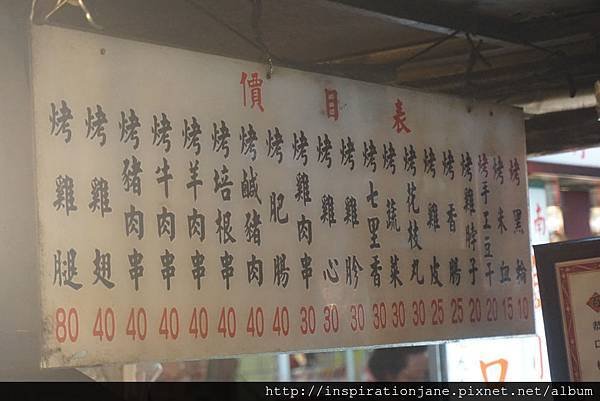 價目表
烤雞腿 80
烤雞翅 40
烤豬肉串 40
烤牛肉串 40
烤羊肉串 40
烤培根串 40
烤鹹豬肉 40
烤肥腸 40
烤雞肉串 30
烤雞心 30
烤雞肣 30
烤七里香 30
烤蔬菜 30
烤花枝丸 30
烤雞皮 25
烤香腸 25
烤雞脖子 20
烤手工豆干 20
烤米血 15
烤黑輪 10
http://inspirationjane.pixnet.net/album